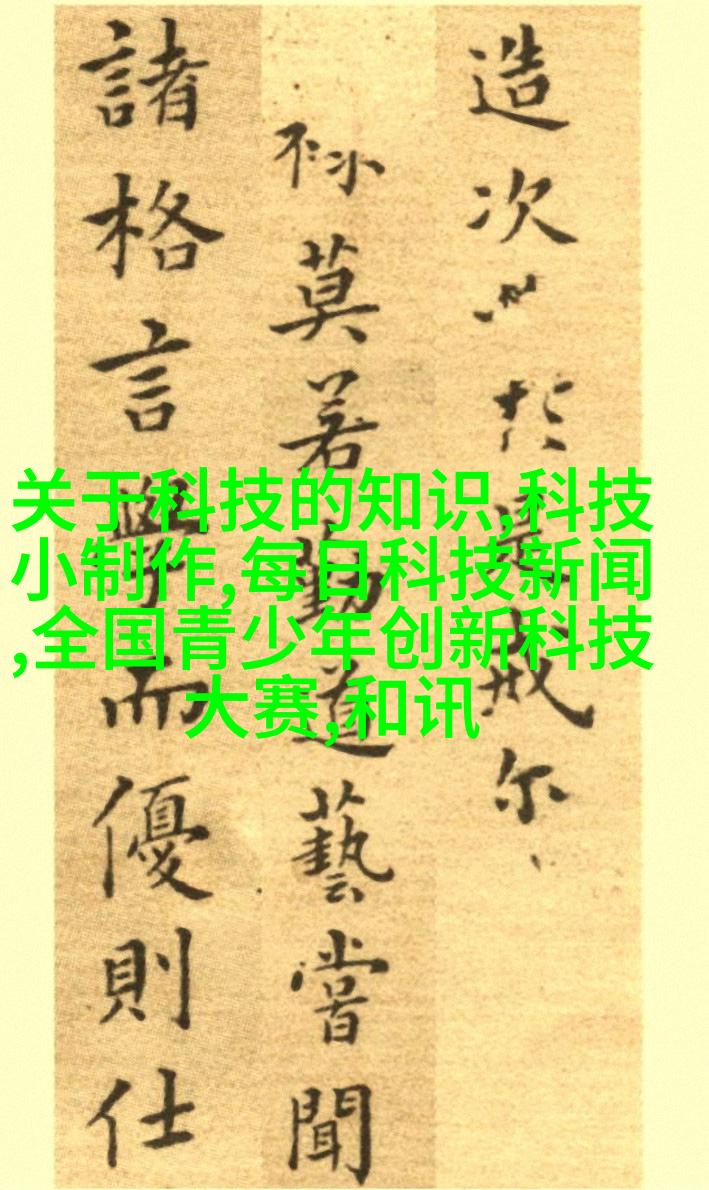 造次必於是戒尔
莫若勤道藝嘗聞
諸格言學而優則仕
关于科技的知识,科技
小制作,每日科技新闻
,全国青少年创新科技
大赛,和讯